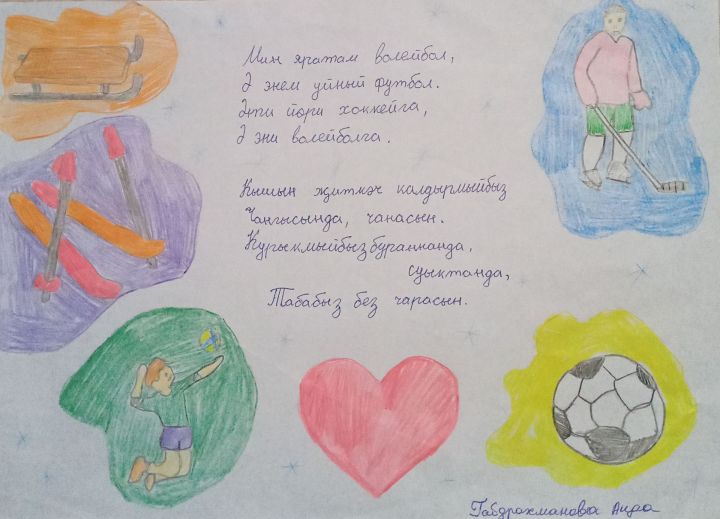 Мин яратам волейбол,
Ә энем уйный футбол.
Әти йөри хоккейга,
Ә әни волейболга.
Кышын җиткәч калдырмыйбыз
Чаңгысында, чанасын.
Курыкмыйбыз буранннанда,
суыктанда,
Табабыз без чарасын.
Габдрахманова Аида